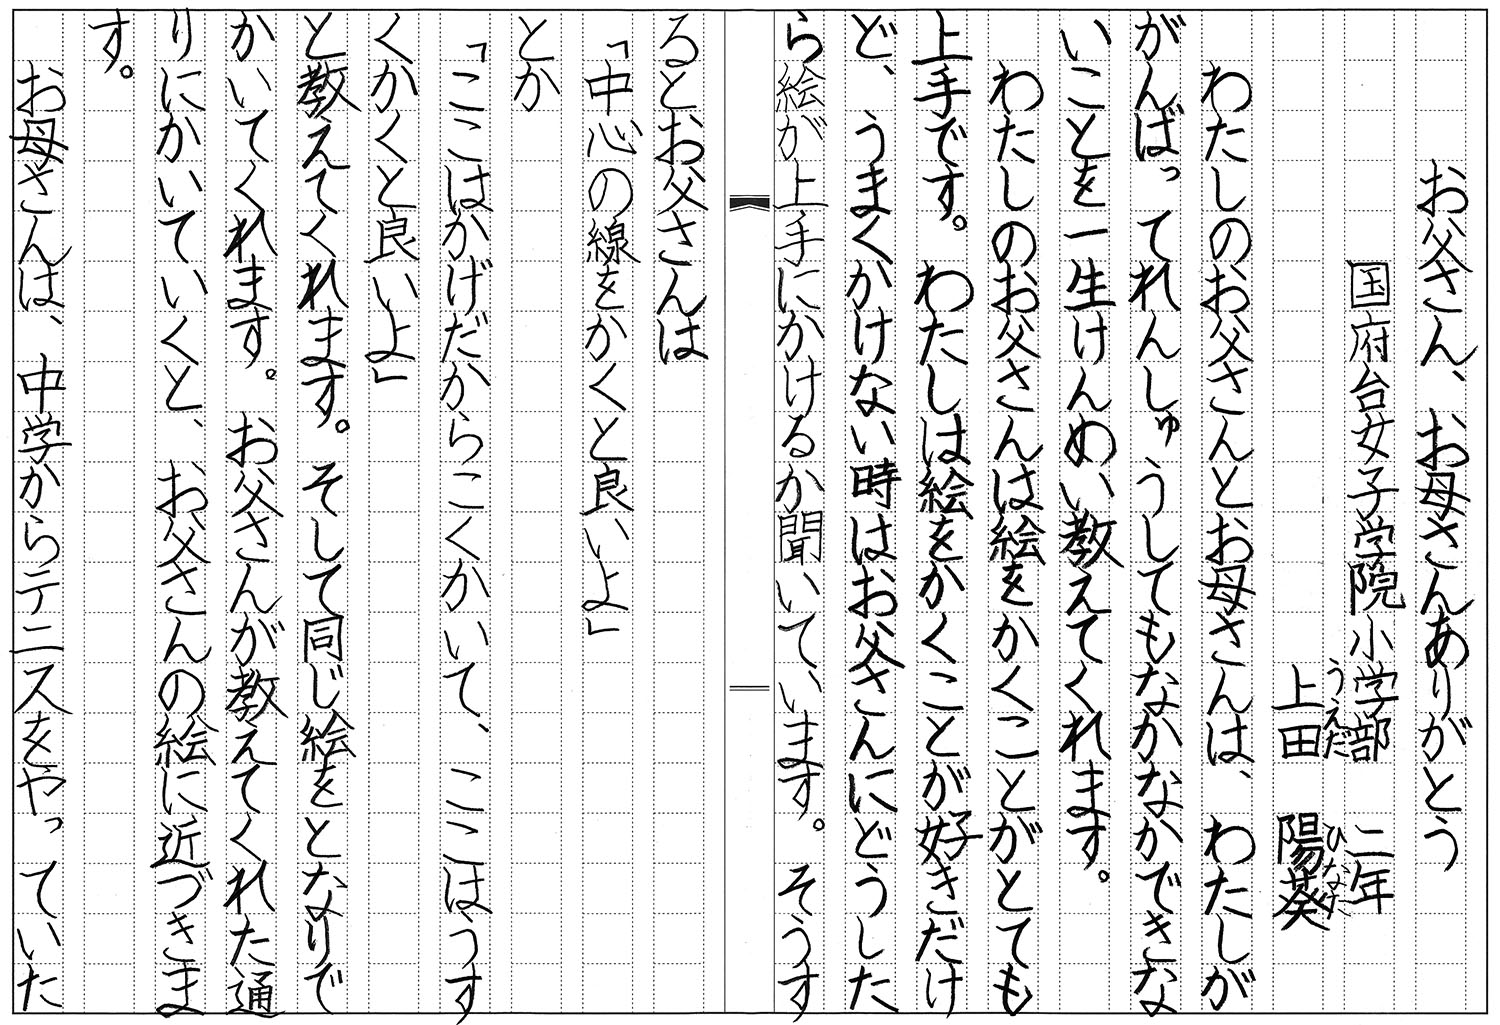 お父さん、お母さんありがとう
国府台女子学院小学部　二年
上田　陽葵
うえだ　ひなた
わたしのお父さんとお母さんは、わたしが
がんばってれんしゅうしてもなかなかできな
いことを一生けんめい教えてくれます。
わたしのお父さんは絵をかくことがとても
上手です。わたしは絵をかくことが好きだけ
ど、うまくかけない時はお父さんにどうした
ら絵が上手にかけるか聞いています。そうす
るとお父さんは
「中心の線をかくと良いよ」
とか
「ここはかげだからこくかいて、ここはうす
くかくと良いよ」
と教えてくれます。そして同じ絵をとなりで
かいてくれます。お父さんが教えてくれた通
りにかいていくと、お父さんの絵に近づきま
す。
お母さんは、中学からテニスをやっていた